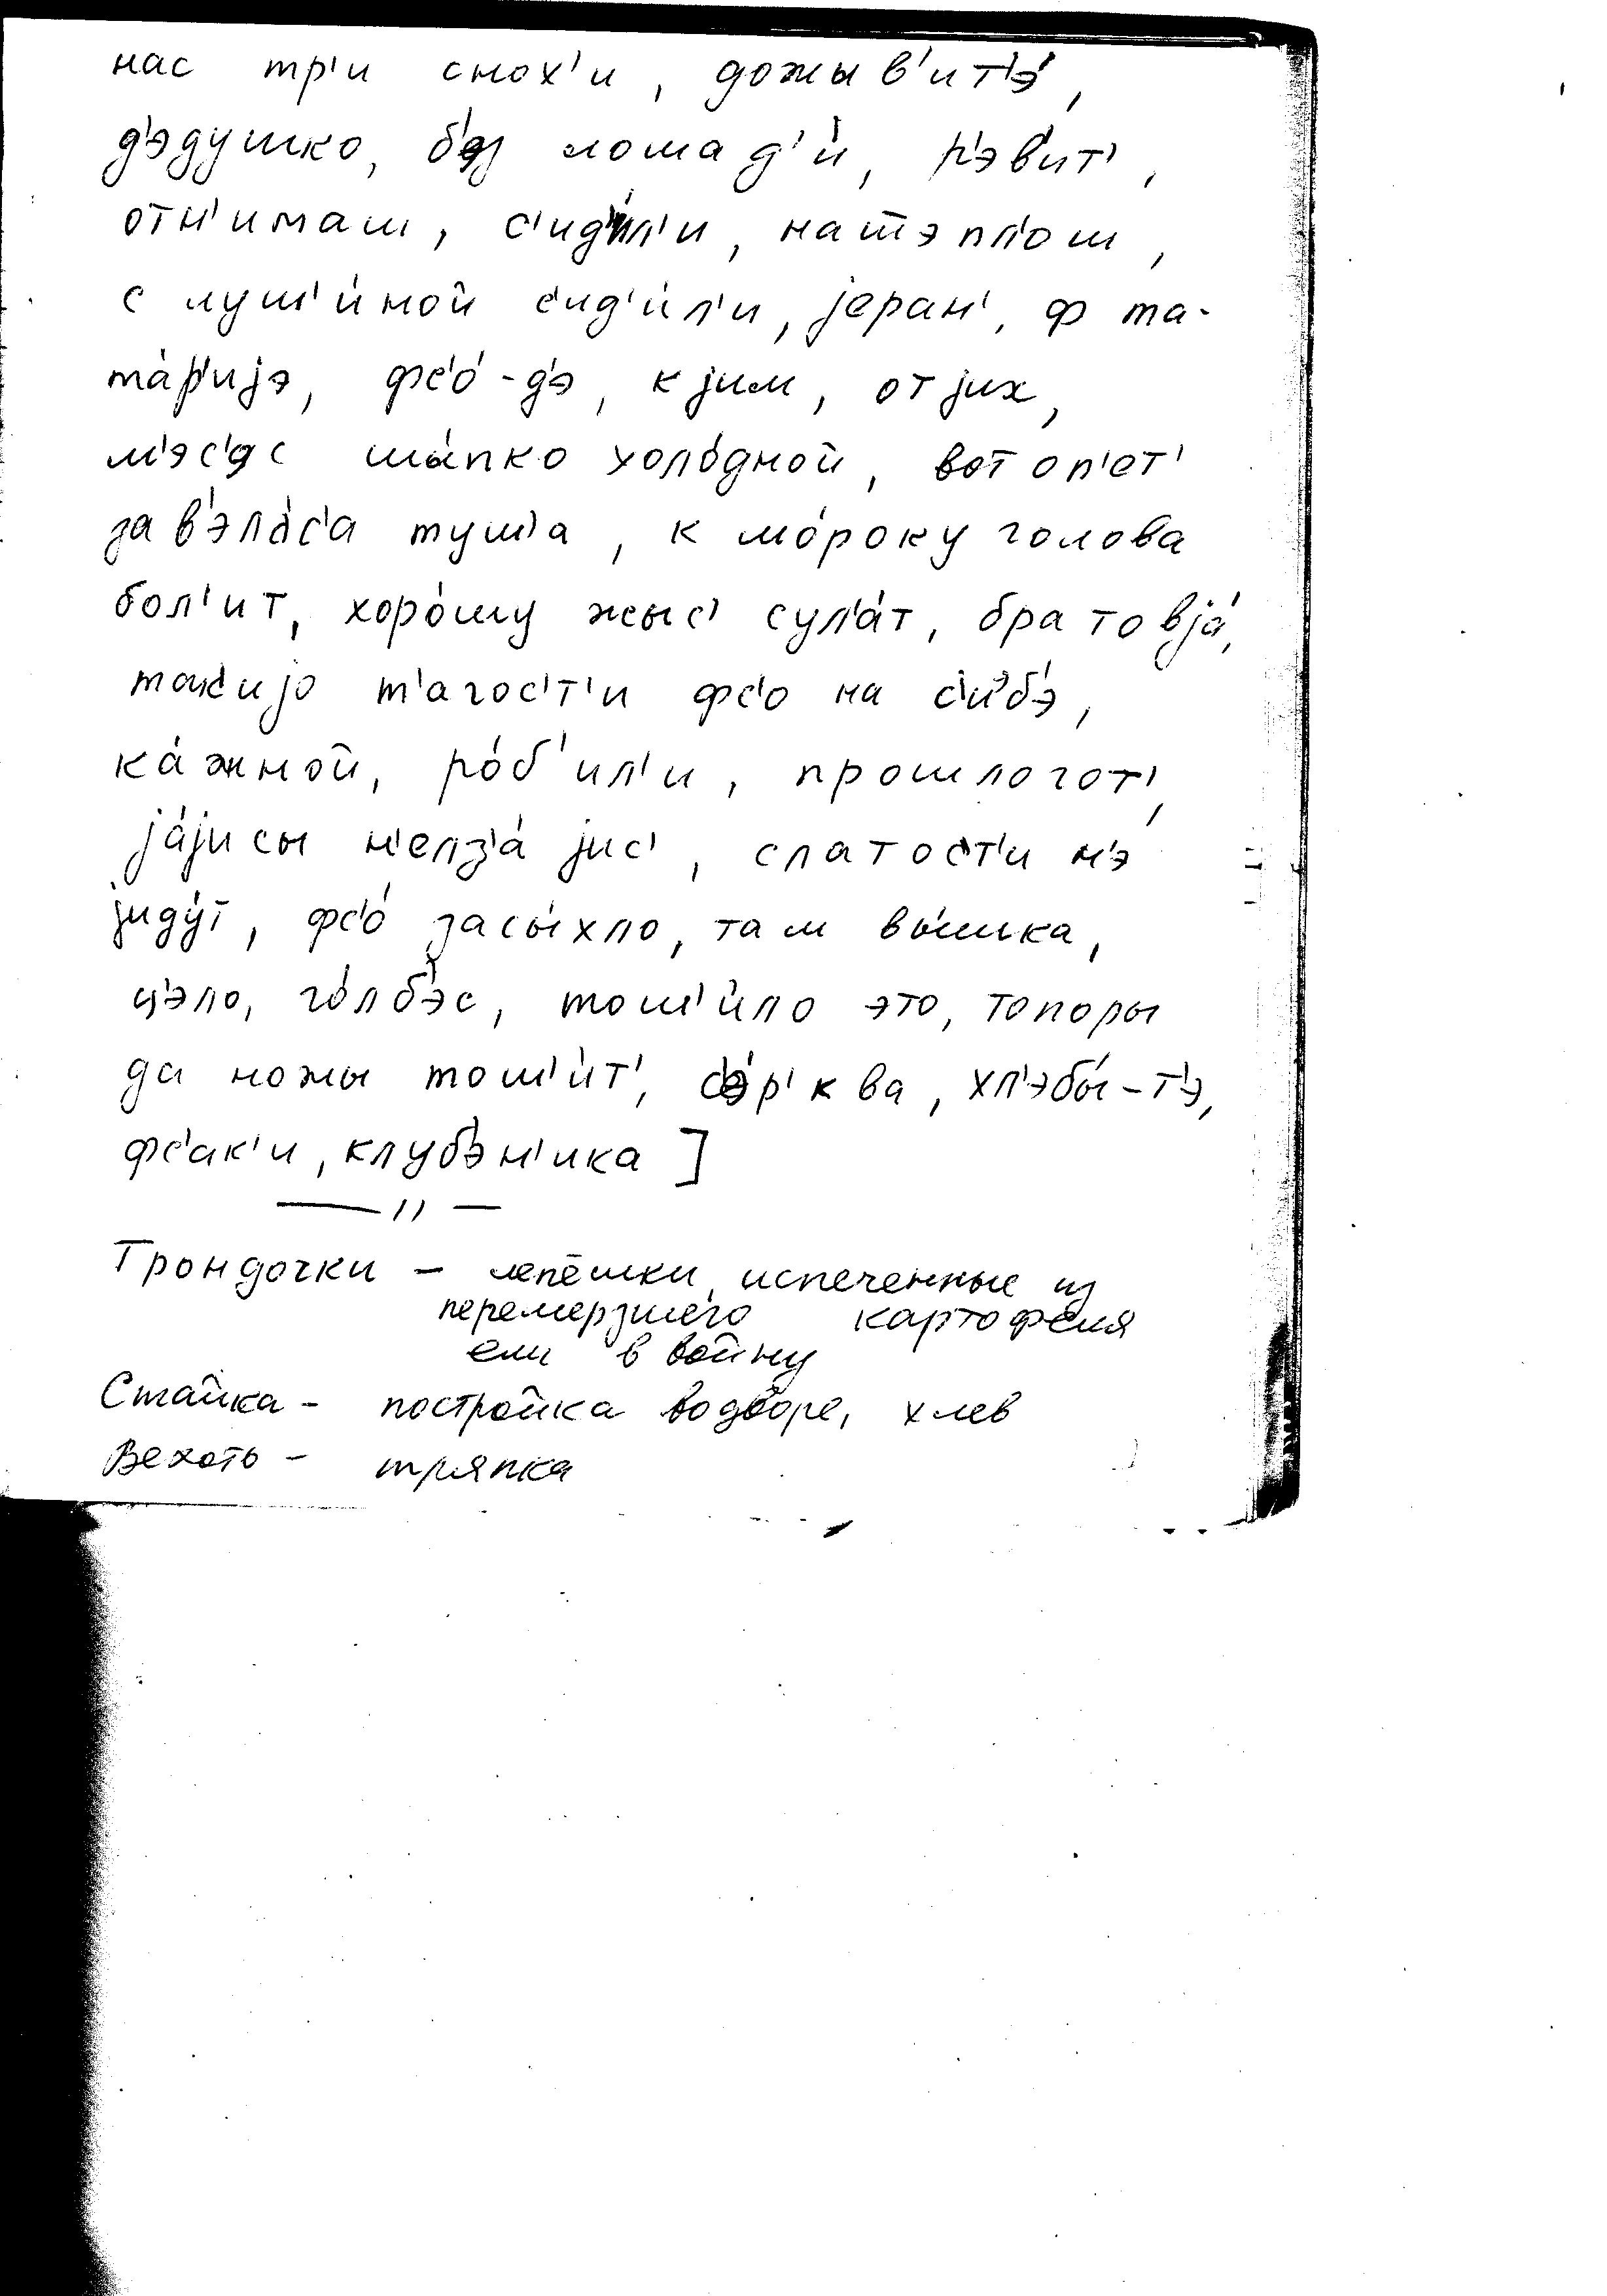 нас тр'и снох'и, дожыв'ит'э́,
д'э́душко, б'эз лошад'и́, р'эв'ит',
отн'имаш, с'ид'и́л'и, натэпл'ош,
с луш'и́ной с'ид'и́л'и, јеран', ф та-
та́р'ијэ, фс'о́-д'э, к јим, отјих,
м'э́с'эс ша́пко холо́дной, вот оп'ет'
зав'эла́с'а туш'а, к мо́року голова
бол'ит, хоро́шу жыс' сул'а́т, братовја́,
так'ијо т'агос'т'и фс'о на с'иб'э́,
ка́жной, ро́б'ил'и, прошлогот',
ја́јисы н'елз'а́ јис', слатос'т'и н'э
јиду́т, фс'о́ засы́хло, там вы́шка,
ц'эло, го́лб'эс, точ'и́ло это, топоры
да ножы точ'и́т', с'э́р'ква, хл'эбы́-т'э,
фс'ак'и, клуб'эн'ика ]
— 11 —
Трондочки - лепёшки, испеченные из
перемерзшего картофеля
ели в войну
Стайка - постройка во дворе, хлев
Вехоть - тряпка